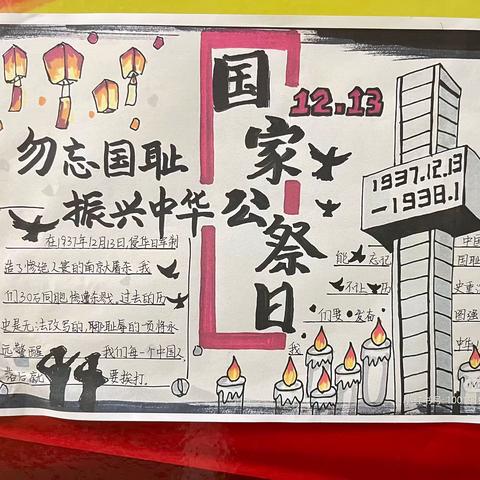 国家公祭日
12.13
勿忘国耻
振兴中华
1937.12.13
-1938.1
在1937年12月13日,侵华日军制
造了惨绝人寰的南京大屠杀,我
们30万同胞惨遭杀戮,过去的历
史是无法改写的,耻辱的一页将永
远警醒 我们每一个中国人
落后就 要挨打.
我
们要 发奋
不让 历
能 忘记
中国
国耻
史重
图强
中华